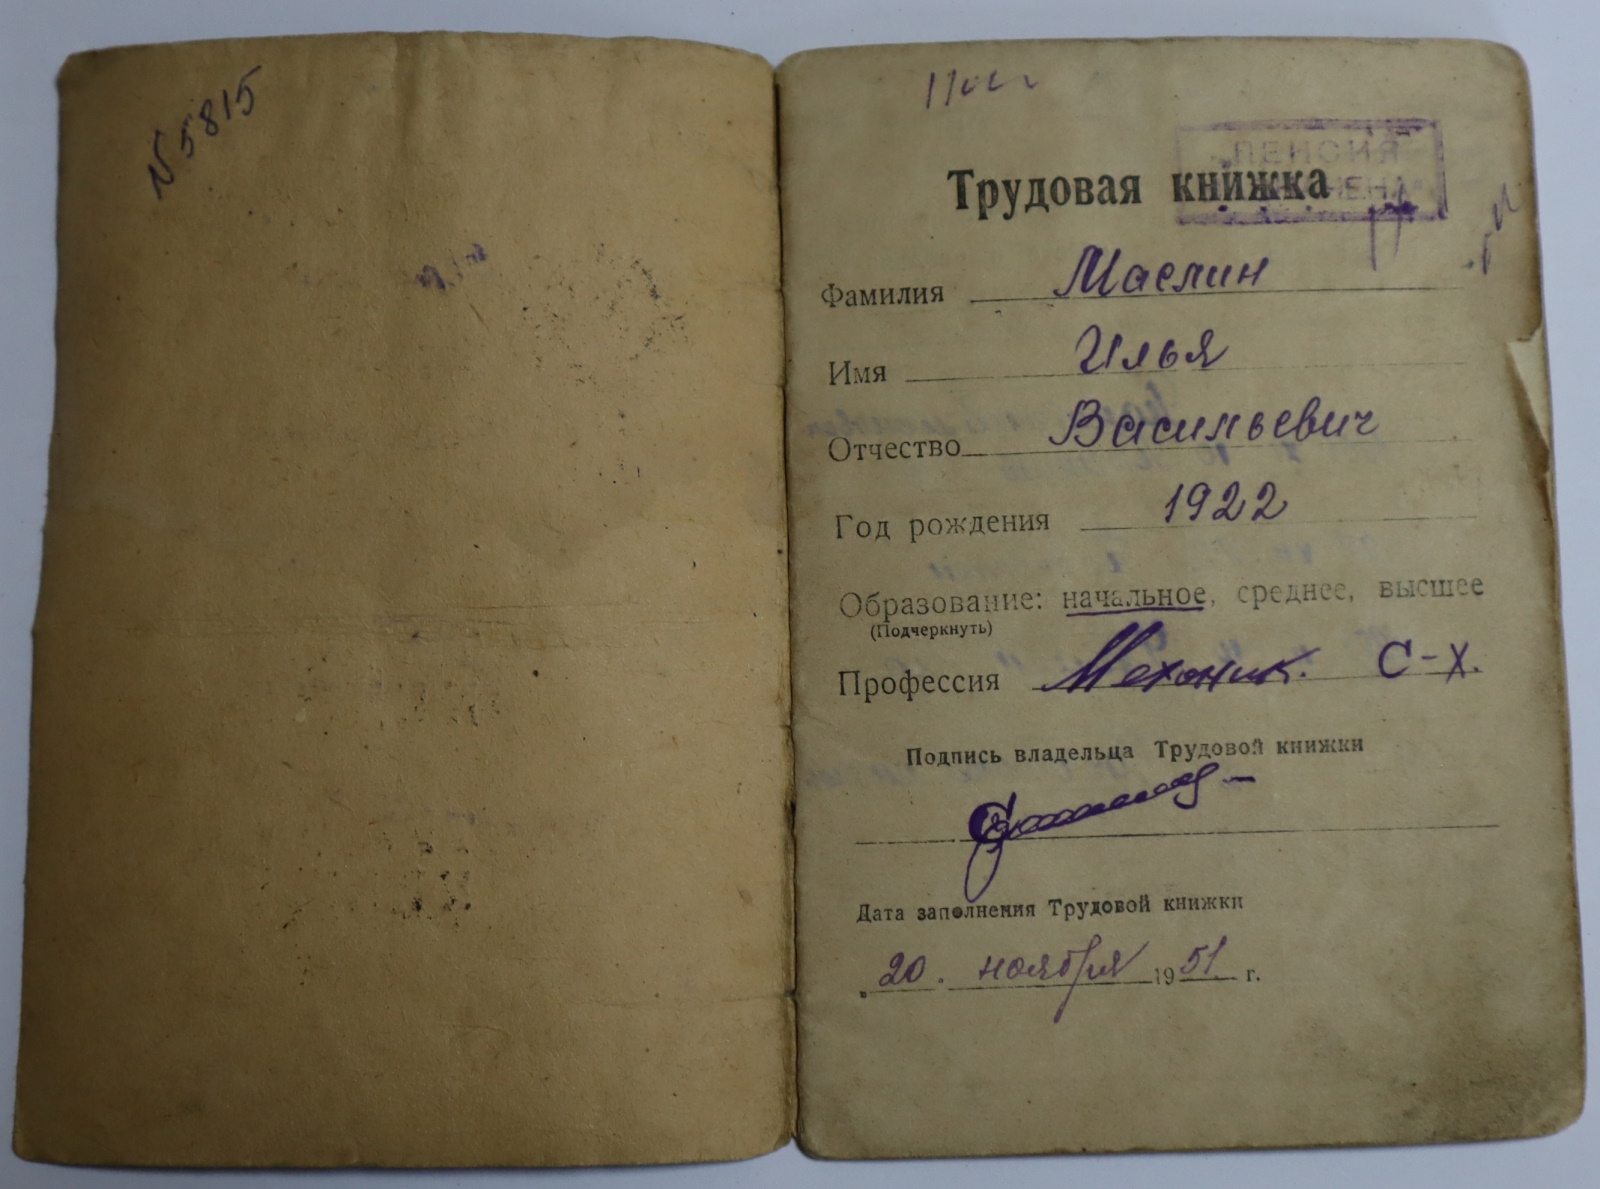 N 5815
ПЕНСИЯ
Трудовая книжка
Фамилия Маслин
Имя Илья
Отчество Васильевич
Год рождения 1922
Образование: начальное, среднее, высшее
(Подчеркнуть)
Профессия Механик. С-Х.
Подпись владельца Трудовой книжки
Дата заполнения Трудовой книжки
„20" ноября 1951 г.